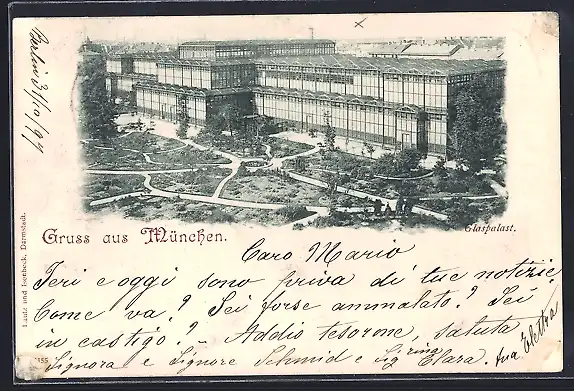 Berlin 31/10/97
Glaspalast.
Gruss aus München.
Lautz und Isenbeck, Darmstadt.
Caro Mario
Ieri e oggi sono priva di tue notizie
Come va? Sei forse ammalato? Sei
in castigo? Addio tesorone, saluta
Signora e Signore Schmid e Sigrina Clara. tua Elettra
155